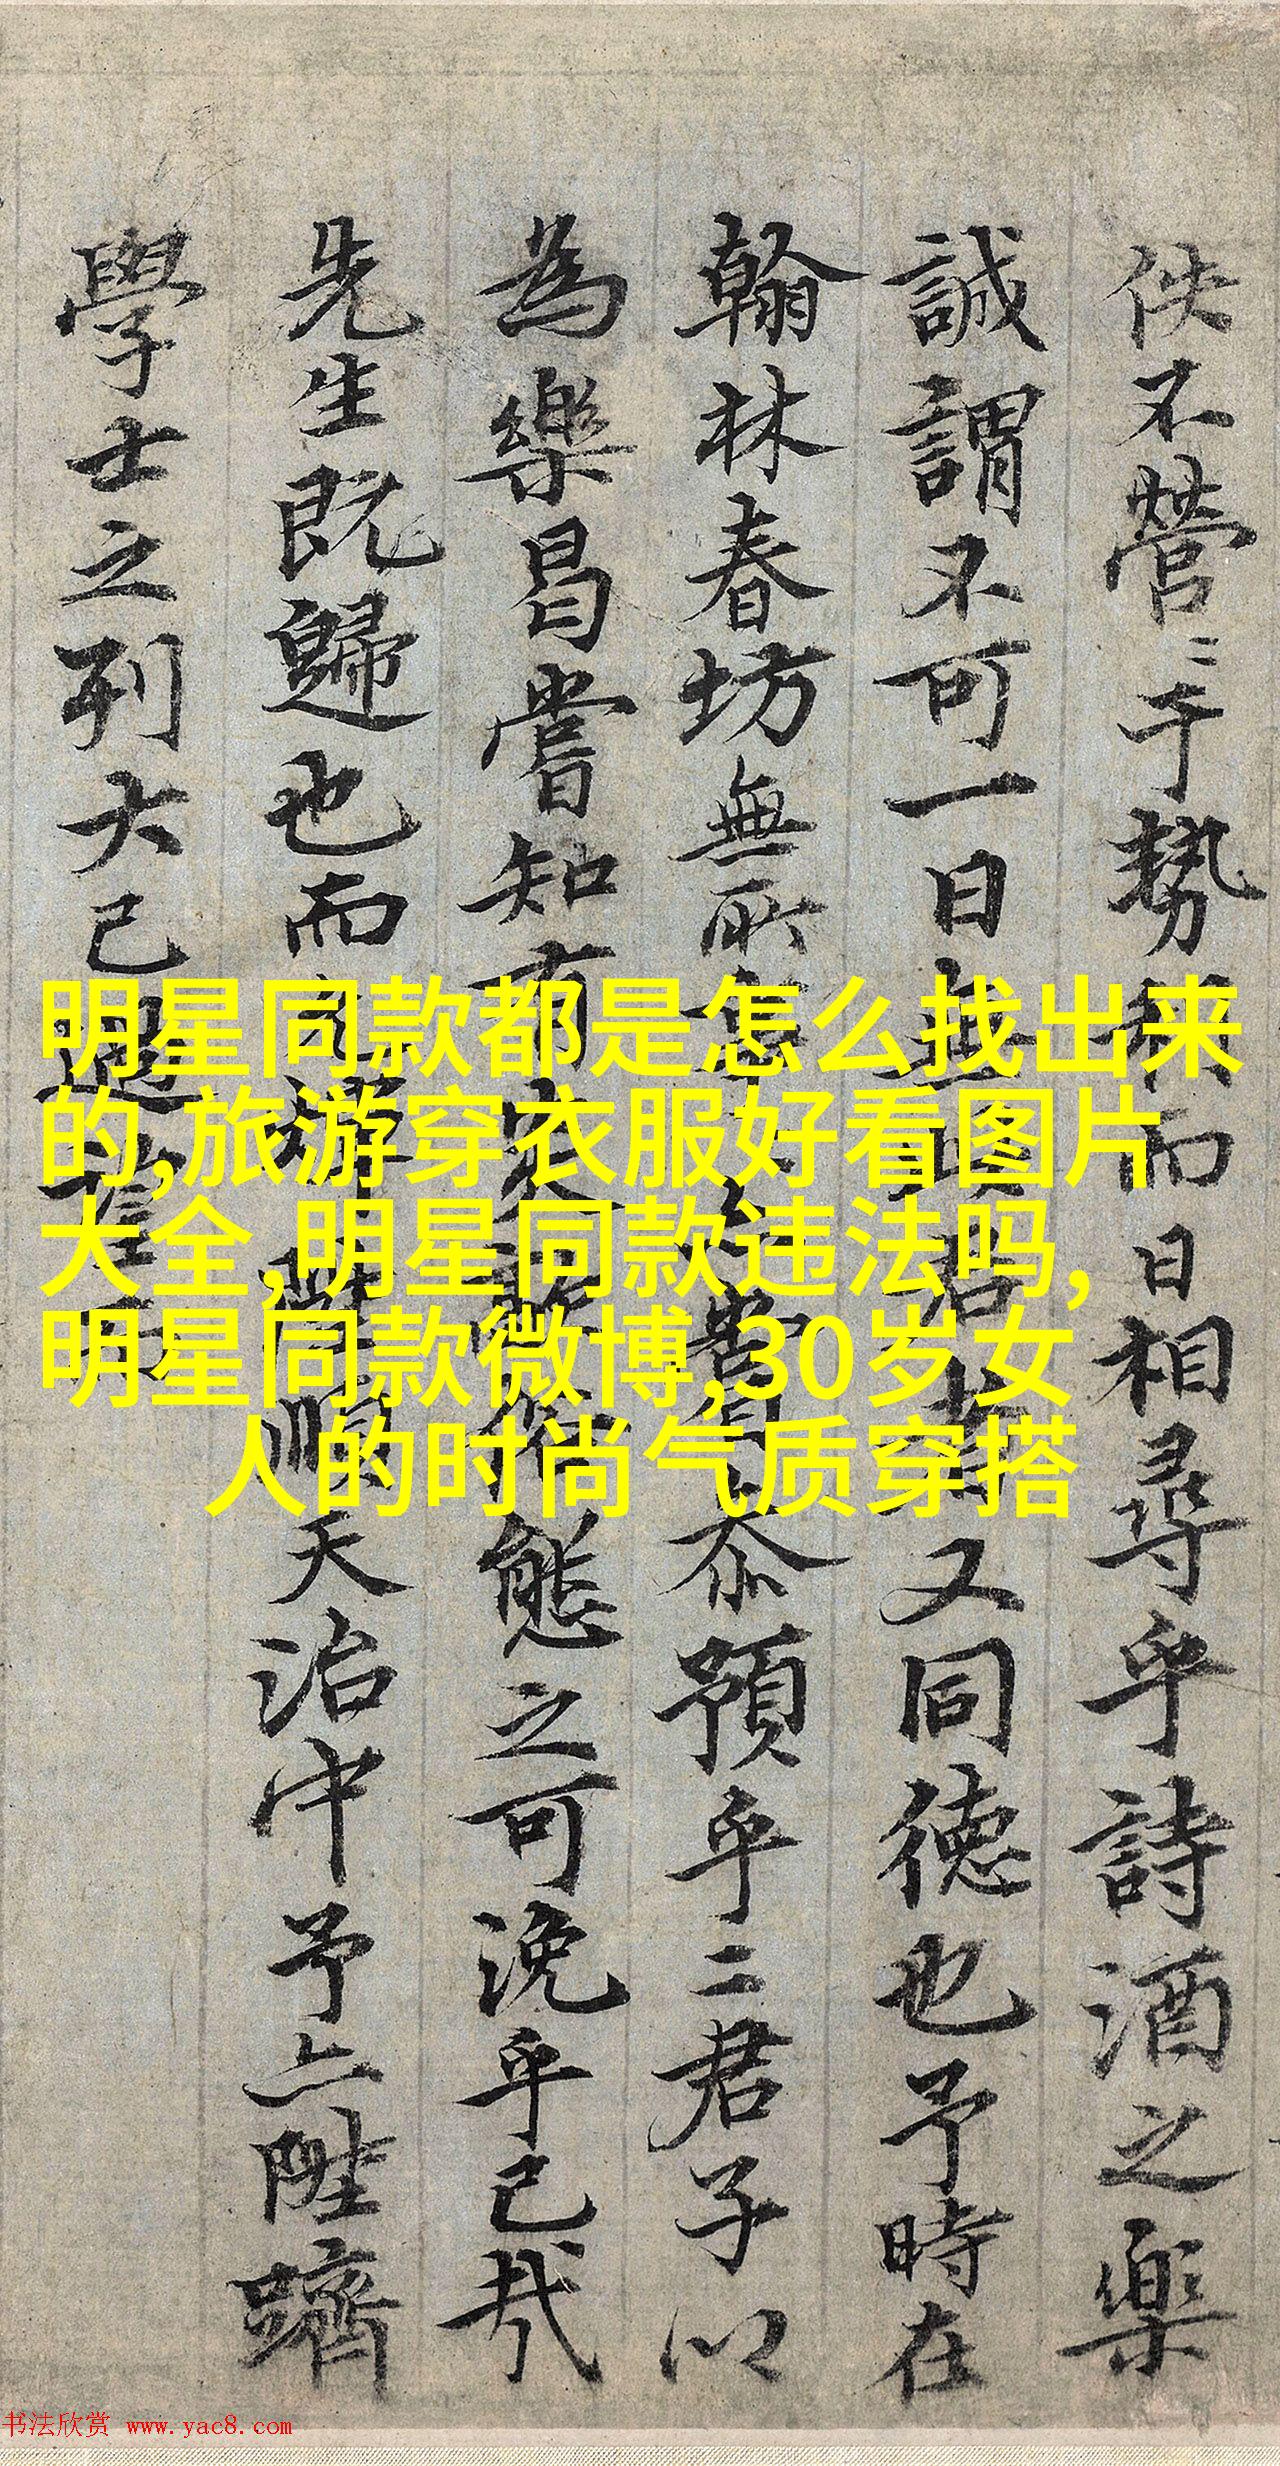 佚不營〻于勢利而日相尋乎詩酒之樂
誠謂不可一日無君者又同德也予時在
翰林春坊無所事皆忝預乎二君子以
為樂曷嘗知有炎態之可浼乎已哉
先生既歸也而順天治中予亦陞躋
學士之列大已過望
明星同款都是怎么找出来
的,旅游穿衣服好看图片
大全,明星同款违法吗,
明星同款微博,30岁女
人的时尚气质穿搭
书法欣赏 www.yac8.com